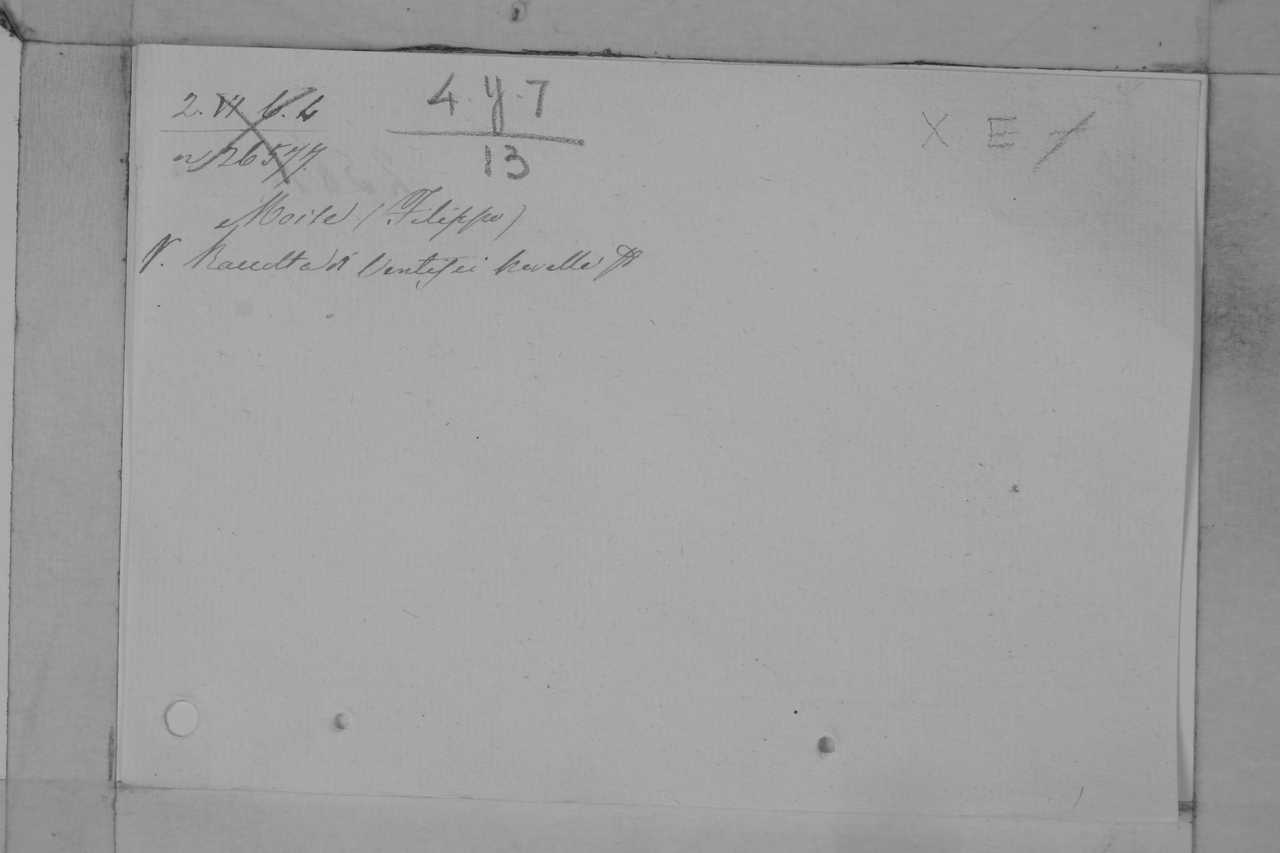 2. VI 6. 6
4. y. 7
n) 26577.
13
X E f
Moise (Filippo)
V. Raccolta di Ventisei Novelle